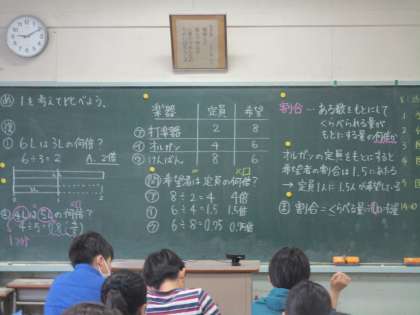 め 1を考えて比べよう。
復
① 6Lは3Lの何倍?
6÷3=2 A. 2倍
② 4Lは5Lの何倍?
4÷5=0.8
楽器 定員 希望
㋐打楽器 2 8
㋑オルガン 4 6
㋒けんばん 8 6
問 希望者は定員の何倍?
㋐ 8÷2=4 4倍
㋑ 6÷4=1.5 1.5倍
㋒ 6÷8=0.75 0.75倍
割合…ある数をもとにして
くらべられる量が
もとにする量の何倍か
オルガンの定員をもとにすると
希望者の割合は1.5にあたる
→定員1人に1.5人が希望している
ま 割合=くらべる量÷もとにする量